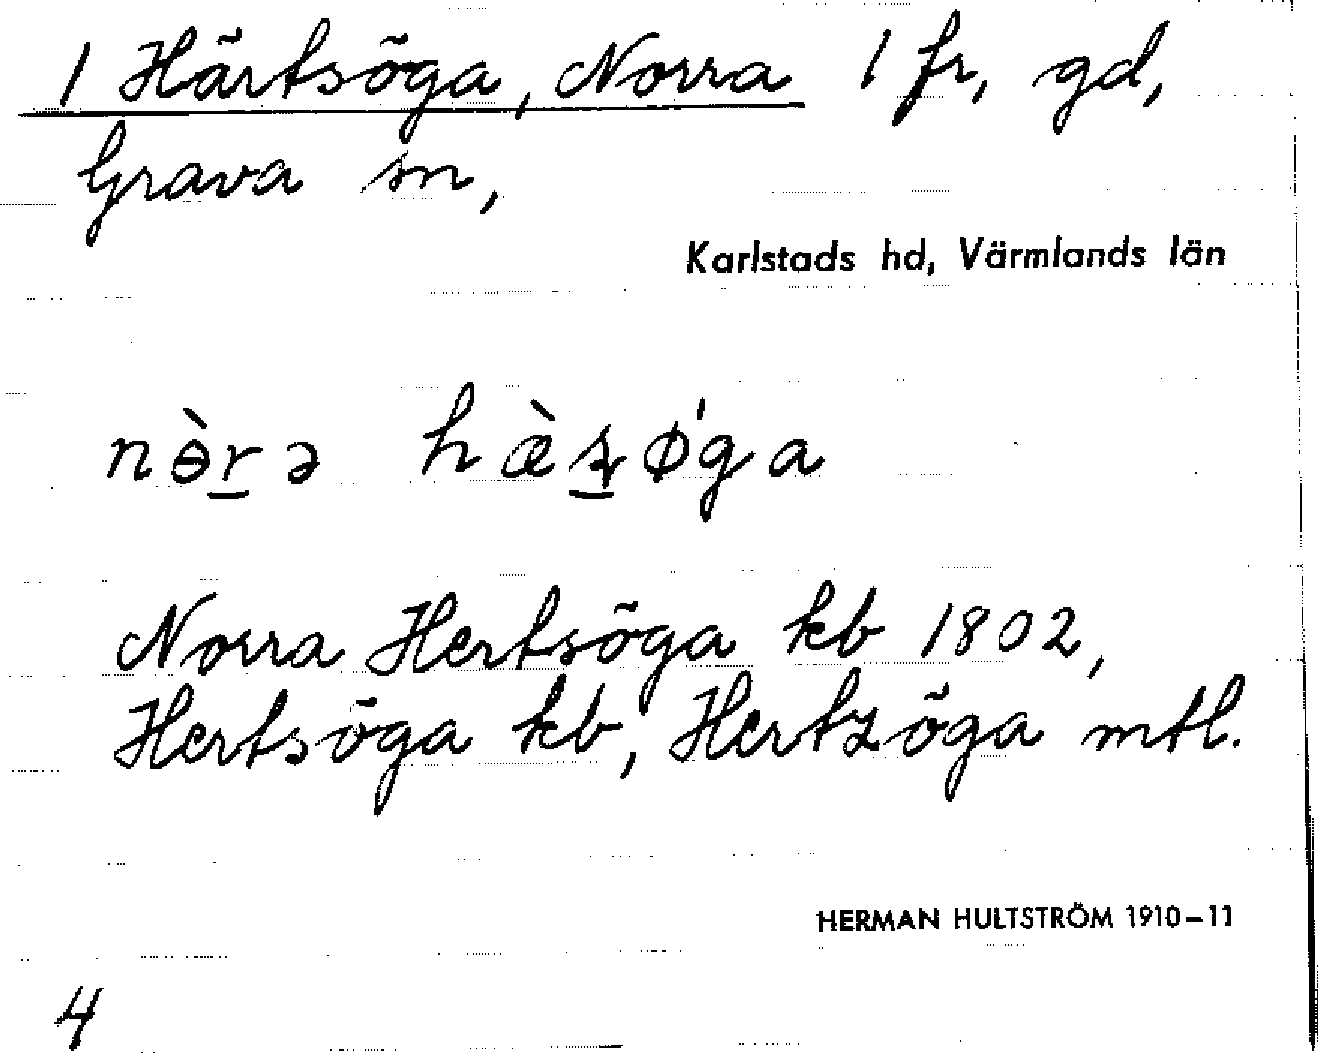 1 Härtsöga, Norra 1 fr, gd,
Grava sn,
Karlstads hd, Värmlands län
nɵ̀r̲ə hæ̀ʂ̲ǿga
Norra Hertsöga kb 1802,
Hertsöga kb, Hertzöga mtl.
HERMAN HULTSTRÖM 1910–11
4